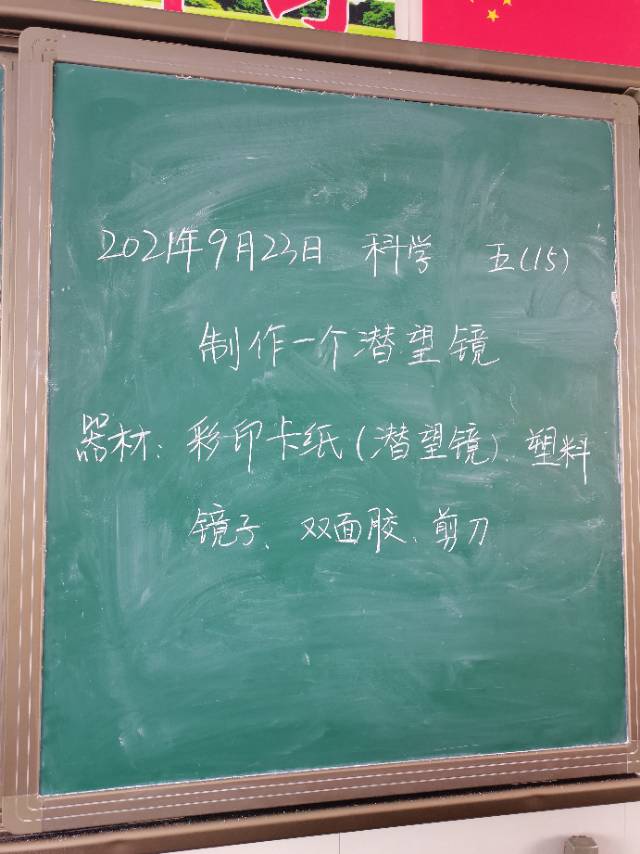 2021年9月23日 科学 五(15)
制作一个潜望镜
器材：彩印卡纸(潜望镜)、塑料
镜子、双面胶、剪刀